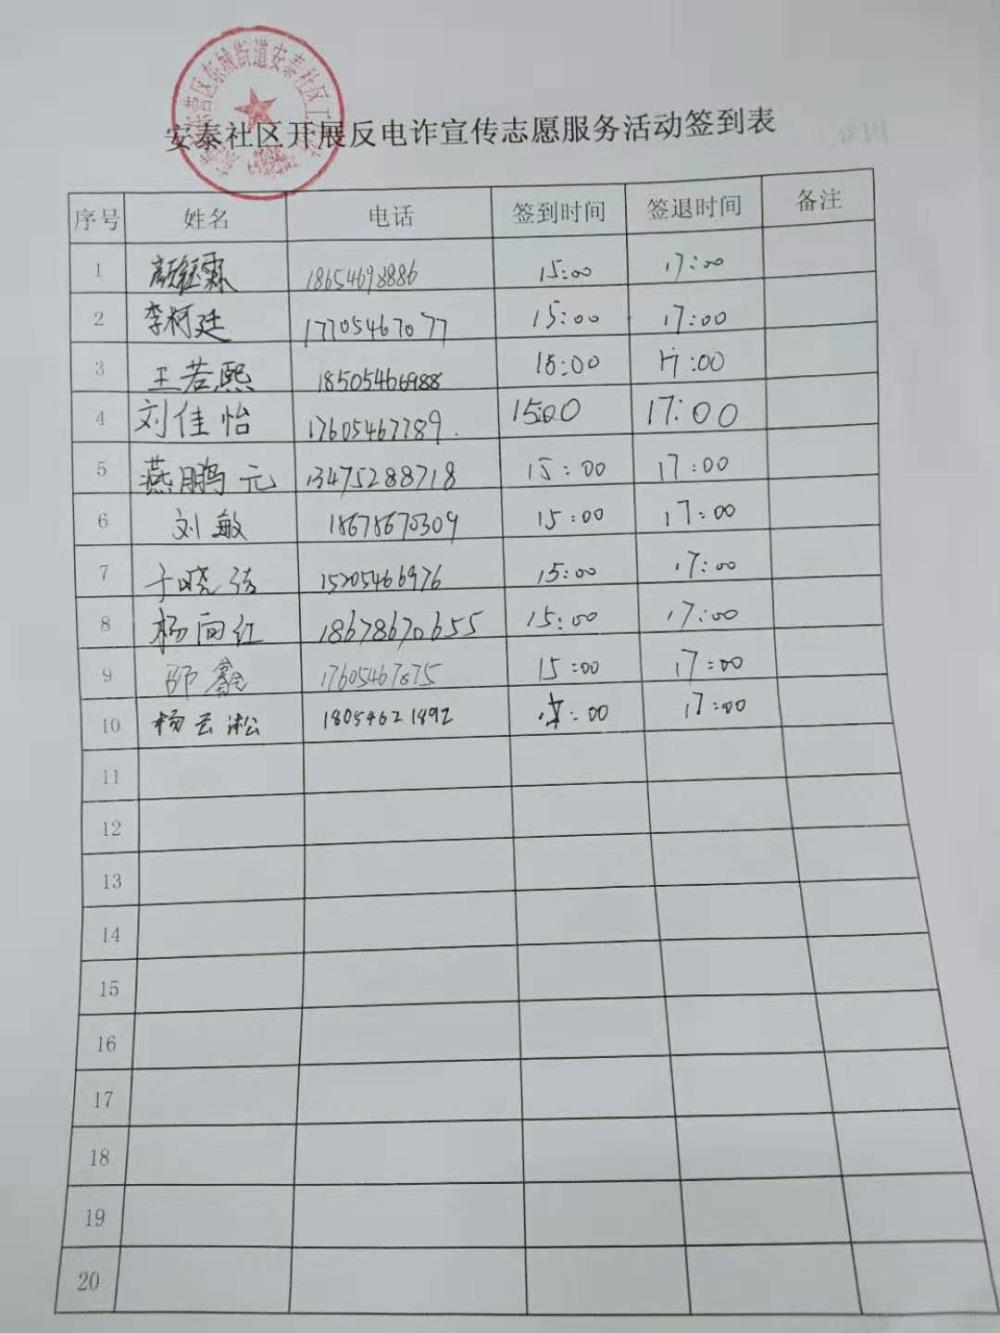 东营区东城街道安泰社区工
安泰社区开展反电诈宣传志愿服务活动签到表
序号 姓名 电话 签到时间 签退时间 备注
1 18654698886 15:00 17:00
2 李柯廷 17705467077 15:00 17:00
3 王若熙 18505466988 15:00 17:00
4 刘佳怡 17605467789. 15:00 17:00
5 燕鹏元 13475288718 15:00 17:00
6 刘敏 18678670309 15:00 17:00
7 于晓 15205466976 15:00 17:00
8 杨向红 18678670655 15:00 17:00
9 邱鑫 17605467875 15:00 17:00
10 杨云淞 18054621892 :00 17:00
11
12
13
14
15
16
17
18
19
20